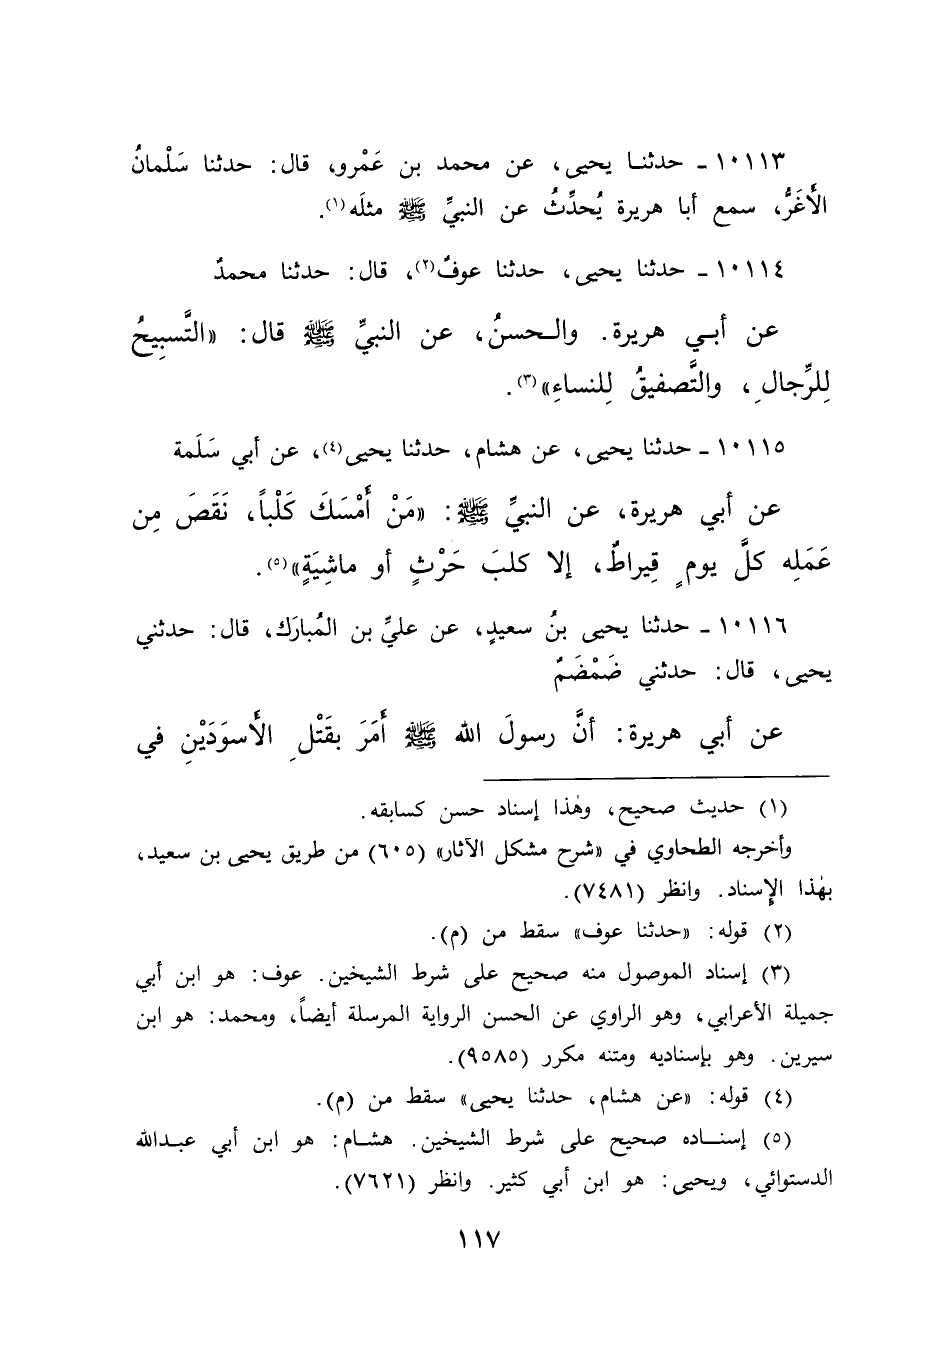 ١٠١١٣ ـ حدثنـا يحيى، عن محمد بن عَمْرو، قال: حدثنا سَلْمانُ
الأَغَرُّ، سمع أبا هريرة يُحدِّثُ عن النبيِّ ﷺ مثلَه(١).
١٠١١٤ ـ حدثنا يحيى، حدثنا عوفٌ(٢)، قال: حدثنا محمدٌ
عن أبـي هريرة. والـحسنُ، عن النبيِّ ﷺ قال: «التَّسبِيحُ
لِلرِّجالِ، والتَّصفيقُ لِلنساءِ»(٣).
١٠١١٥ ـ حدثنا يحيى، عن هشام، حدثنا يحيى(٤)، عن أبي سَلَمة
عن أبي هريرة، عن النبيِّ ﷺ: «مَنْ أَمْسَكَ كَلْباً، نَقَصَ مِن
عَمَلِه كلَّ يومٍ قِيراطٌ، إلا كلبَ حَرْثٍ أو ماشِيَةٍ»(٥).
١٠١١٦ ـ حدثنا يحيى بنُ سعيدٍ، عن عليِّ بن المُبارَك، قال: حدثني
يحيى، قال: حدثني ضَمْضَمٌ
عن أبي هريرة: أنَّ رسولَ الله ﷺ أَمَرَ بقَتْلِ الأَسوَدَيْنِ في
(١) حديث صحيح، وهٰذا إسناد حسن كسابقه.
وأخرجه الطحاوي في «شرح مشكل الآثار» (٦٠٥) من طريق يحيى بن سعيد،
بهٰذا الإِسناد. وانظر (٧٤٨١).
(٢) قوله: «حدثنا عوف» سقط من (م).
(٣) إسناد الموصول منه صحيح على شرط الشيخين. عوف: هو ابن أبي
جميلة الأعرابي، وهو الراوي عن الحسن الرواية المرسلة أيضاً، ومحمد: هو ابن
سيرين. وهو بإسناديه ومتنه مكرر (٩٥٨٥).
(٤) قوله: «عن هشام، حدثنا يحيى» سقط من (م).
(٥) إسنـاده صحيح على شرط الشيخين. هشـام: هو ابن أبي عبـدالله
الدستوائي، ويحيى: هو ابن أبي كثير. وانظر (٧٦٢١).
١١٧